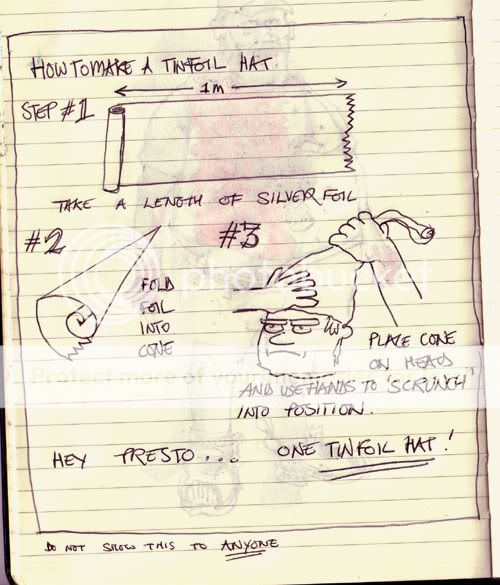 HOW TO MAKE A TINFOIL HAT.
STEP #1
1m
TAKE A LENGTH OF SILVER FOIL
#2
FOLD
FOIL
INTO
CONE
#3
PLACE CONE
ON HEAD
AND USE HANDS TO 'SCRUNCH'
INTO POSITION.
HEY PRESTO... ONE TINFOIL HAT!
DO NOT SHOW THIS TO ANYONE
photobucket
Protect more of your